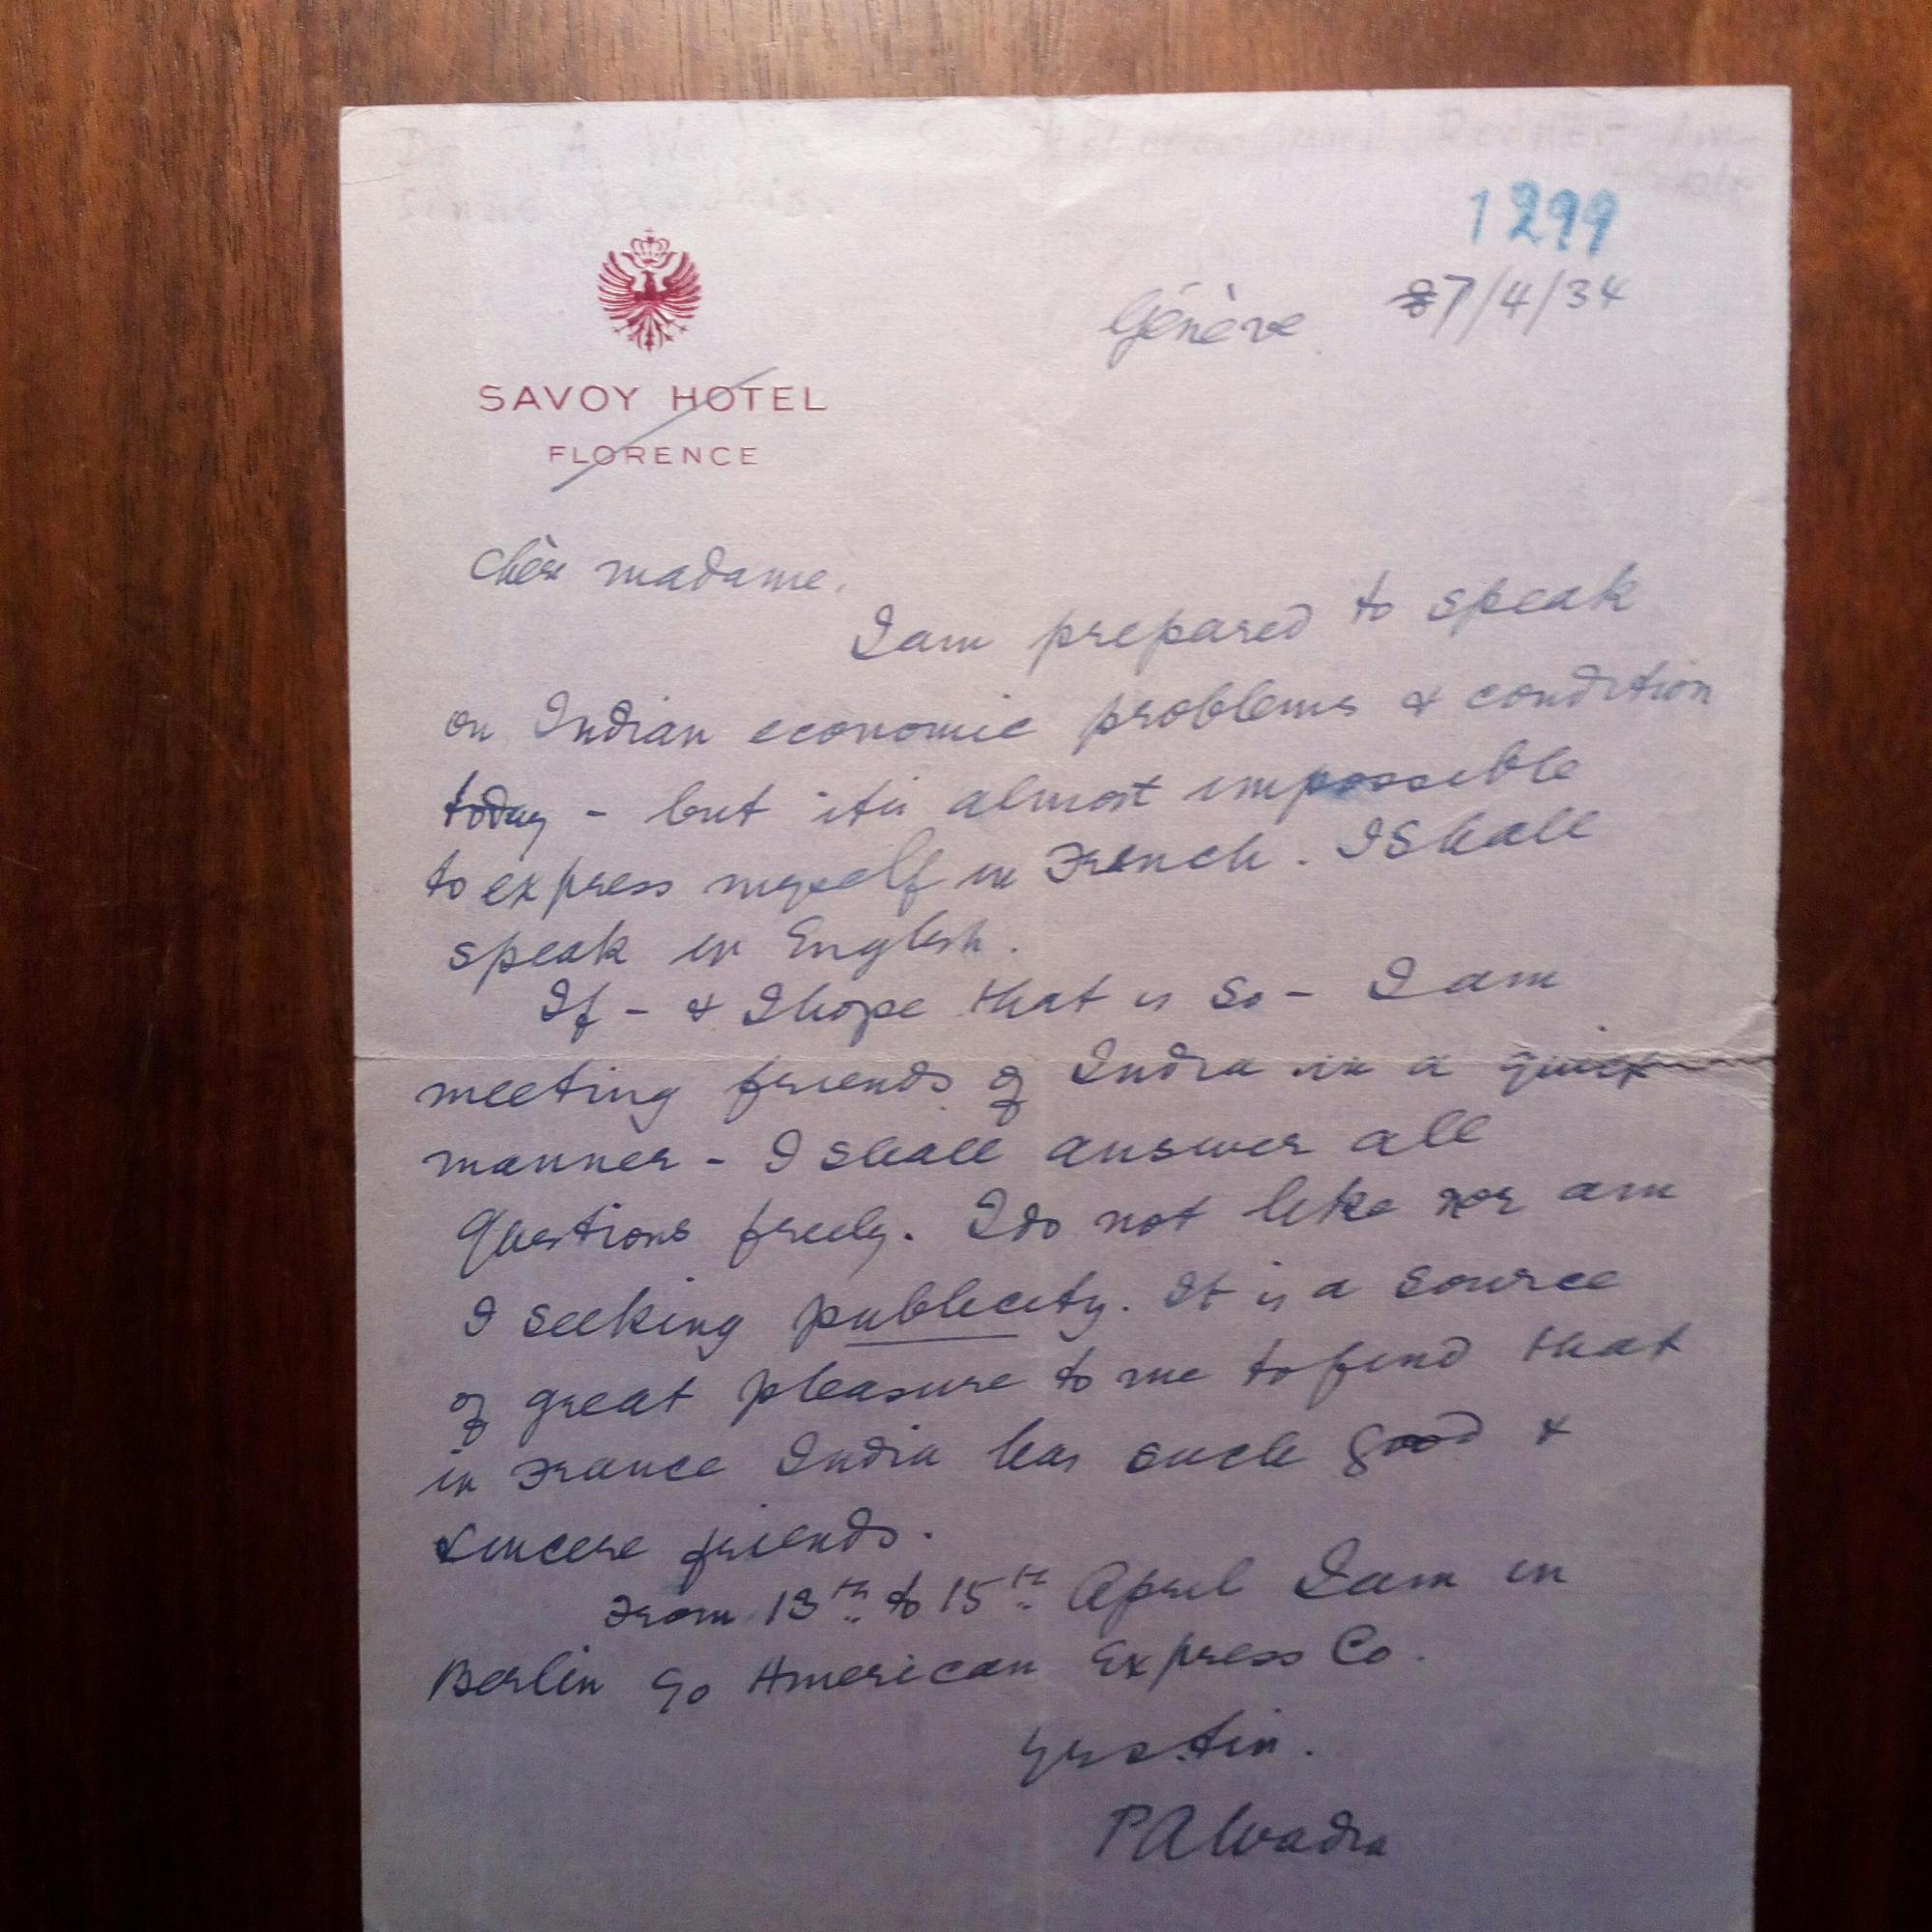 1299
Génève. 7/4/34
SAVOY HOTEL
FLORENCE
Chère madame.
I am prepared to speak
on Indian economic problems & condition
today - but it is almost impossible
to express myself in French. I shall
speak in English.
If - & I hope that is so - I am
meeting friends of India in a quiet
manner - I shall answer all
questions freely. I do not like nor am
I seeking publicity. It is a source
of great pleasure to me to find that
in France India has such good &
sincere friends.
From 13th to 15th April I am in
Berlin c/o American Express Co.
P A Wadia